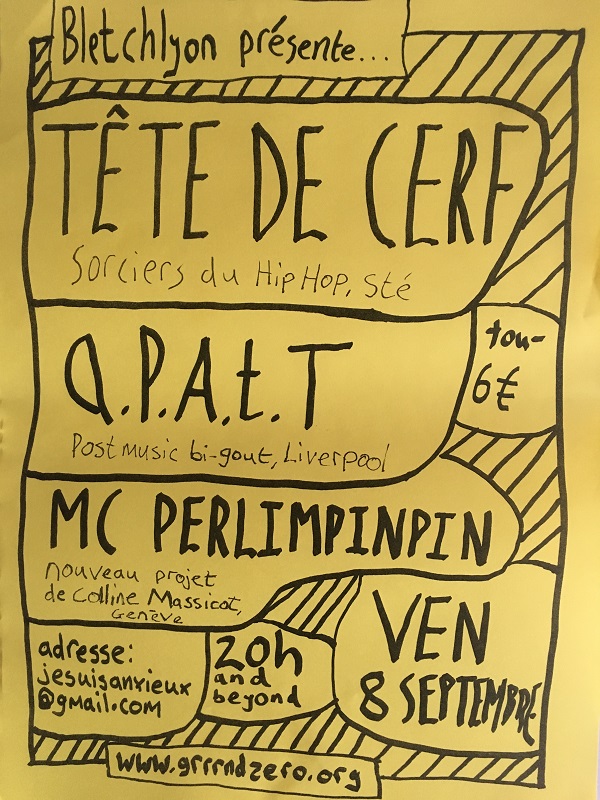 Bletchlyon présente...
TÊTE DE CERF
Sorciers du HipHop, Sté
Q.P.A.t.T
tou-
6€
Post music bi-gout, Liverpool
MC PERLIMPINPIN
nouveau projet
de Colline Massicot,
Genève
VEN
8 SEPTEMBRE
20h
and
beyond
adresse:
jesuisanxieux
@gmail.com
www.grrrndzero.org